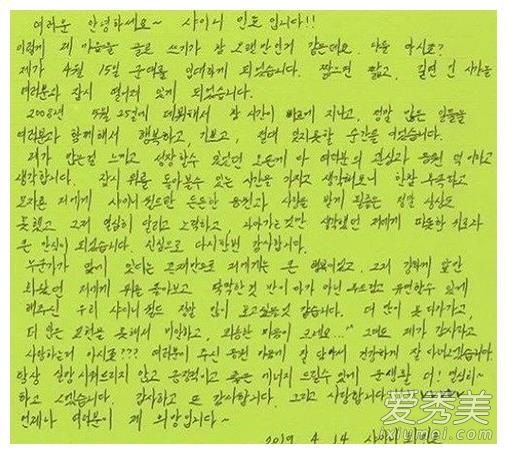 여러분 안녕하세요~ 샤이니 민호 입니다!!
이렇게 제 마음을 글로 쓰기가 참 오랜만인거 같은데요. 다들 아시죠?
제가 4월 15일 군대를 입대하게 되었습니다. 짧으면 짧고, 길면 긴 시간을
여러분과 잠시 떨어져 있게 되었습니다.
2008년 5월 25일에 데뷔해서 참 시간이 빠르게 지나고, 정말 많은 일들을
여러분과 함께해서 행복하고, 기쁘고 절대 잊지못할 순간을 여겼습니다.
제가 많은걸 느끼고 성장할수 있었던 모든게 다 여러분의 관심과 응원 덕이라고
생각합니다. 잠시 뒤를 돌아볼수 있는 시간을 가지고 생각해보니 한참 부족하고
모자란 저에게 샤이니월드란 든든한 응원과 사랑을 받게 될줄은 정말 상상도
못했고 그저 열심히 달리고 노력하고 나아가는것만 생각했던 저에게 따뜻한 위로와
큰 안식이 되었습니다. 진심으로 다시한번 감사합니다.
누군가가 옆에 있다는 존재만으로 저에게는 큰 행복이었고, 그저 강하게 앞만
봐왔던 저에게 뒤를 돌아보고 딱딱한것 만이 다가 아닌 부드럽고 유연할수 있게
해주신 우리 샤이니월드 정말 많이 보고싶을것 같습니다. 더 많이 못다가가고,
더 많은 표현을 못해서 미안하고, 죄송한 마음이 크네요...^^ 그래도 제가 감사하고
사랑하는거 아시죠??? 여러분이 주신 응원 마음에 잘 담아서 건강하게 잘 다녀오겠습니다.
항상 실망 시켜드리지 않고 긍정적이고 좋은 에너지 드릴수 있게 군생활 더! 열심히~
하고 오겠습니다. 감사하고 또 감사합니다. 그리고 사랑합니다!!
언제나 여러분이 제 희망입니다~
2019. 4. 14 샤이니 민호
爱秀美
ixiumei.com